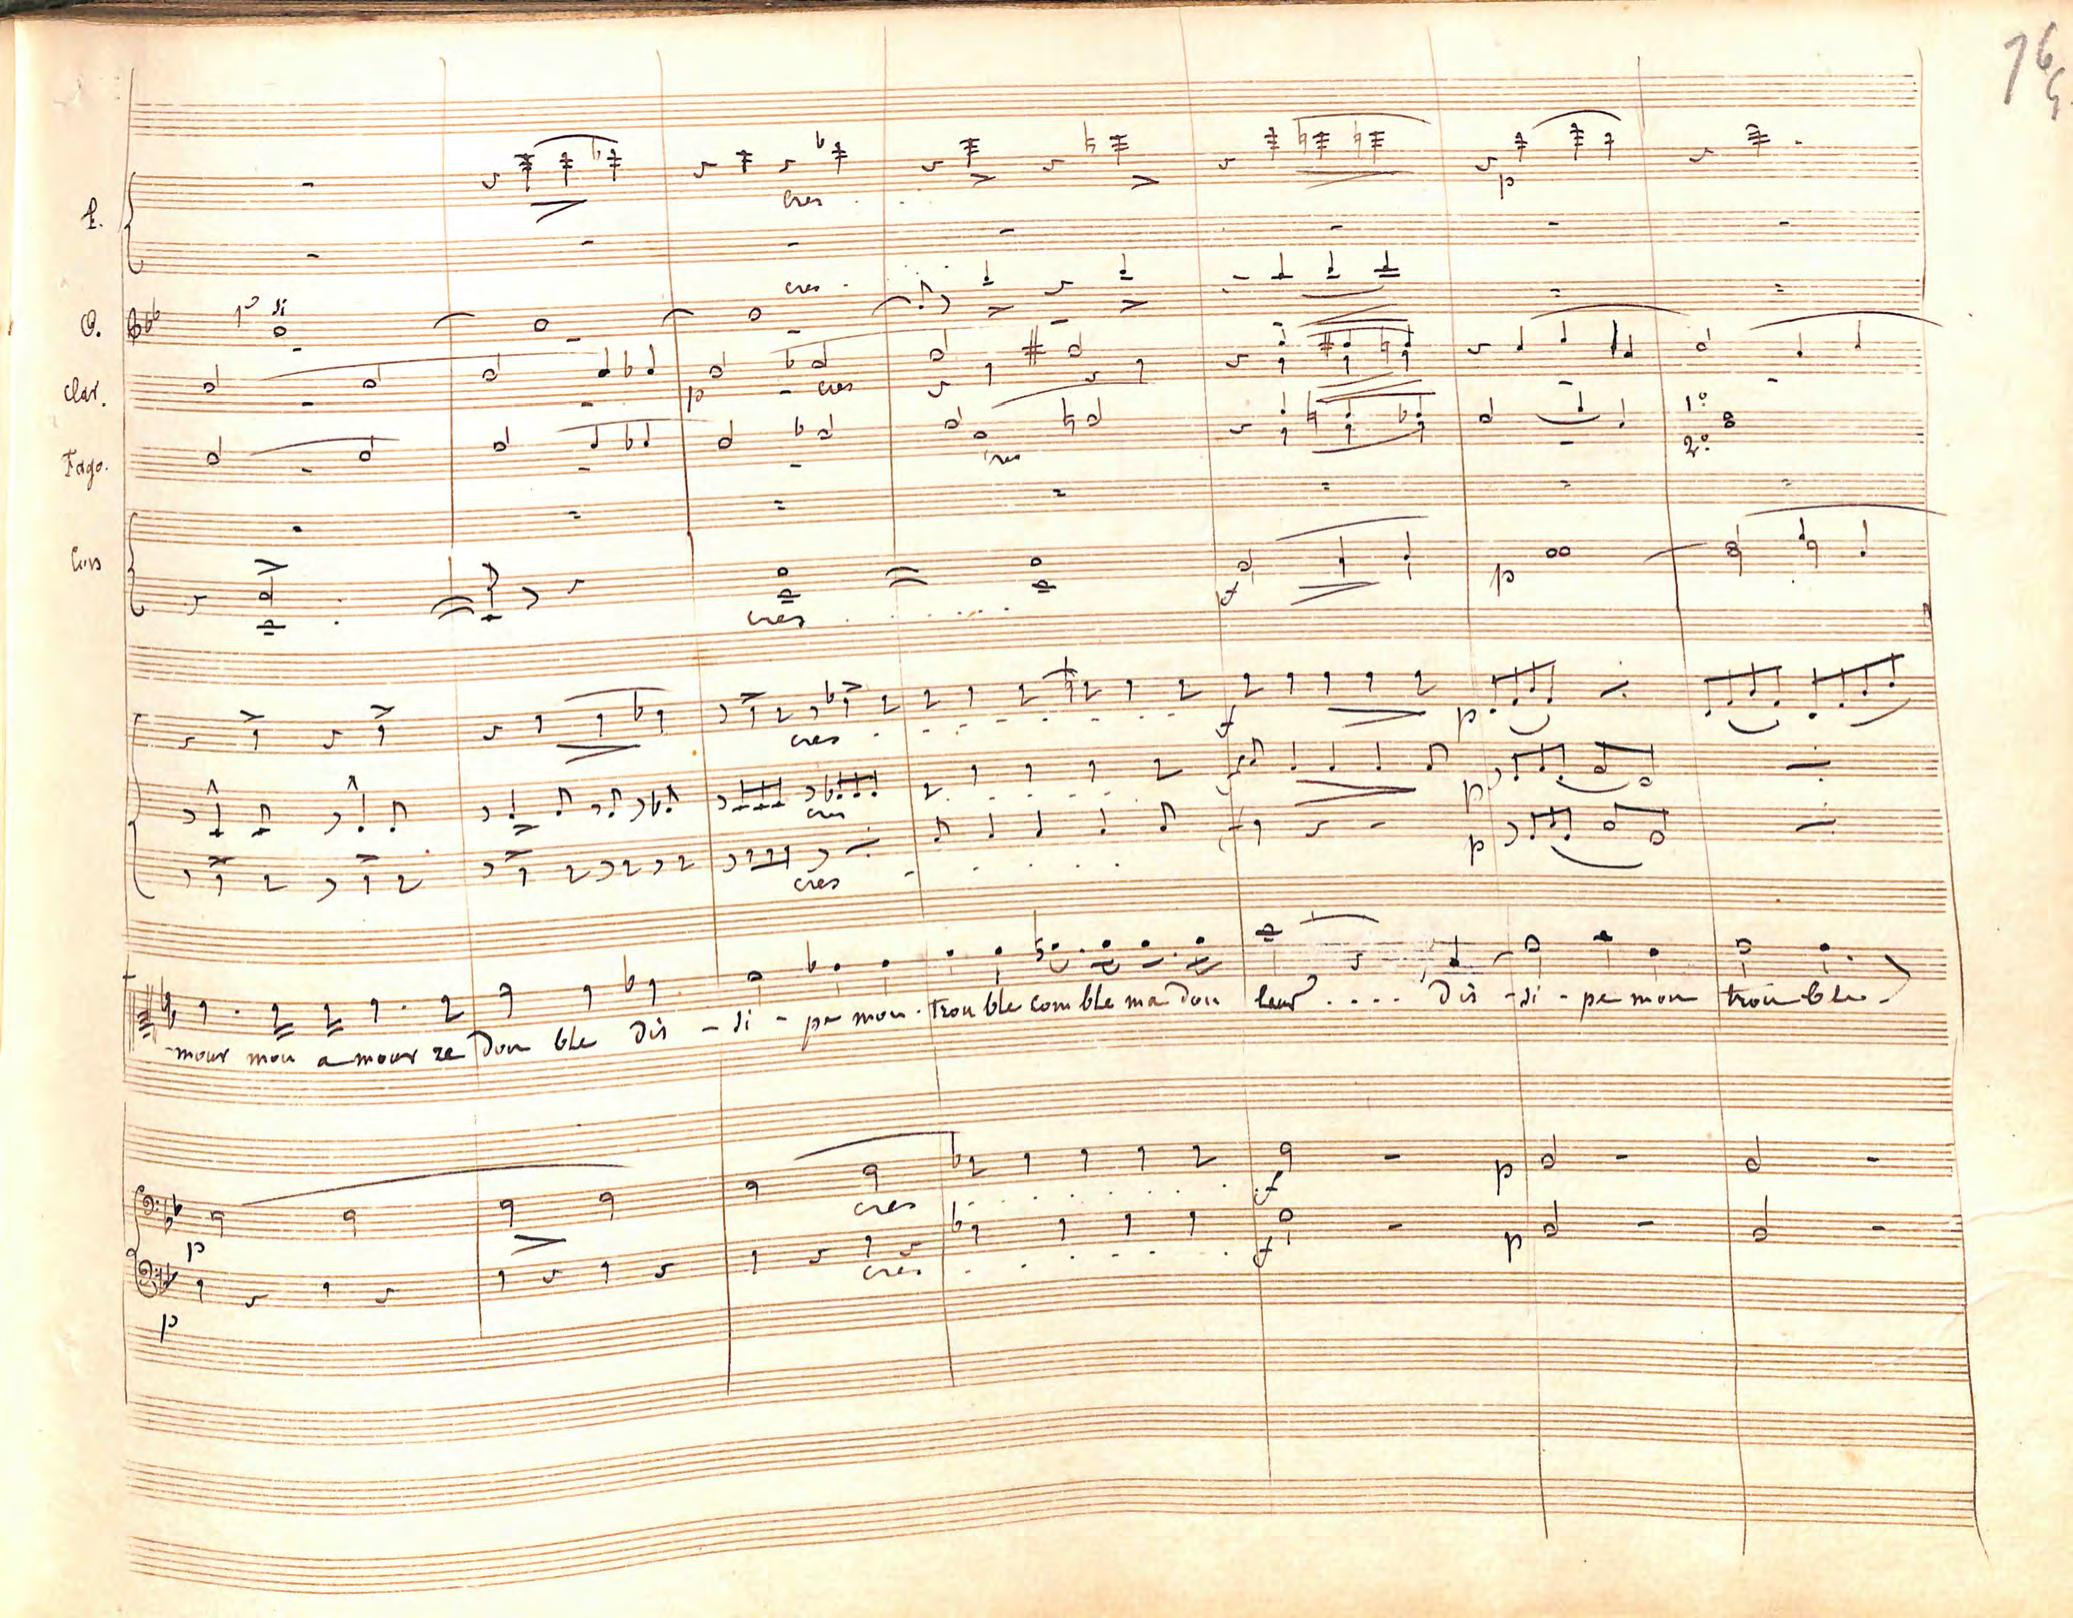 fl.
cres
cres
O. 1o si
Clar. p cres
Fago. cres 1o 2o
Cors cres f p
cres f p
cres p
cres p
-mour mon a-mour re dou ble dis - si - pe mon trou ble com ble ma dou leur .... dis - si - pe mon trouble
p cres f p
p cres f p